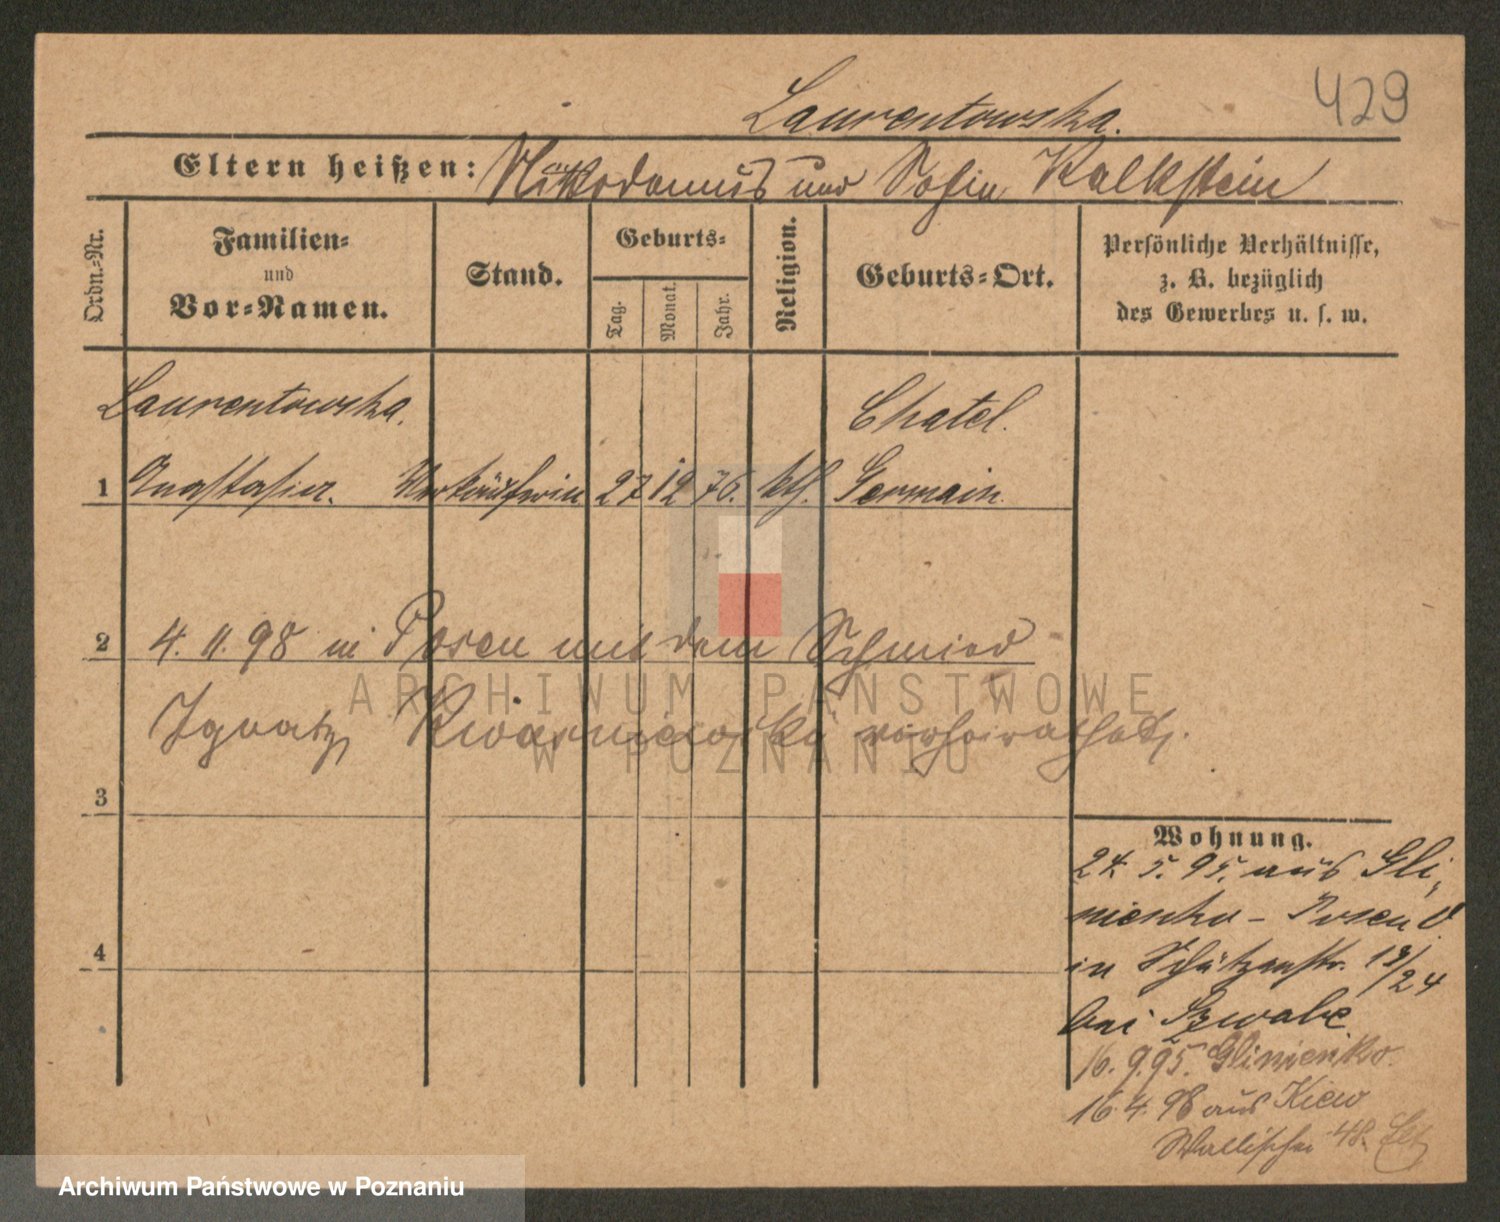 429
Laurentowska.
Eltern heißen: Nikodemus und Sofia Kalkstein
Ordn.-Nr.
Familien-
und
Vor-Namen.
Stand.
Geburts-
Tag.
Monat.
Jahr.
Religion.
Geburts-Ort.
Persönliche Verhältnisse,
z. B. bezüglich
des Gewerbes u. s. w.
Laurentowska. Chatel.
1 Anastasia. Verkäuferin 27 12 76. kth. Germain
2 4. 11. 98 in Posen mit dem Schmied
Ignatz verheirathet.
3
4
Wohnung.
24. 5. 95. aus Gli-
nienko - Posen O.
in Schützenstr. 18/24
bei Szwabe
16. 9. 95. Glinienko.
16. 4. 98 aus Kiew
Wallischei 48.
ARCHIWUM PAŃSTWOWE
W POZNANIU
Archiwum Państwowe w Poznaniu